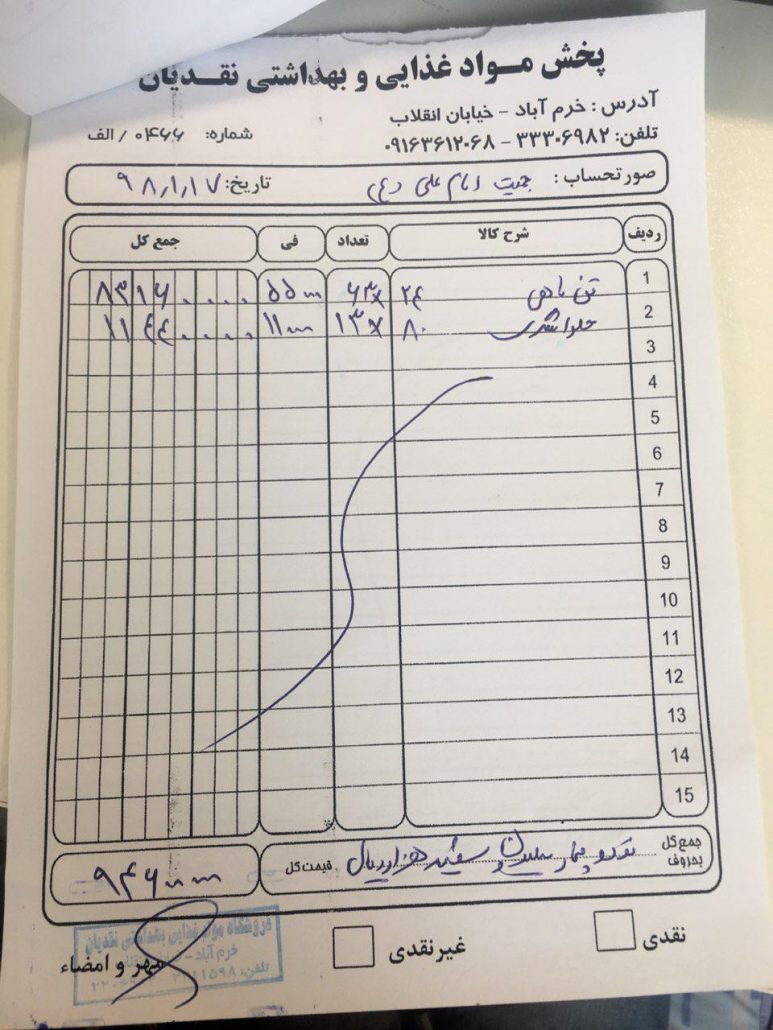 پخش مواد غذایی و بهداشتی نقدیان
آدرس : خرم آباد - خیابان انقلاب
تلفن: ۳۳۳۰۶۹۸۲ - ۰۹۱۶۳۶۱۲۰۶۸
شماره: ۰۴۶۶ / الف
صورتحساب : جمعیت امام علی (ع)
تاریخ: ۹۸/۱/۱۷
ردیف شرح کالا تعداد فی جمع کل
1 تن ماهی ۲۴ ۶۳x ۵۵۰۰۰ ۸۳۱۶۰۰۰۰
2 حلوا شکری ۸۰ ۱۳x ۱۱۰۰۰ ۱۱۴۴۰۰۰۰
3
4
5
6
7
8
9
10
11
12
13
14
15
جمع کل بحروف نود و چهار میلیون و ششصد هزار ریال قیمت کل ۹۴۶۰۰۰۰۰
نقدی غیرنقدی مهر و امضاء
فروشگاه مواد غذایی بهداشتی نقدیان
خرم آباد -
تلفن: